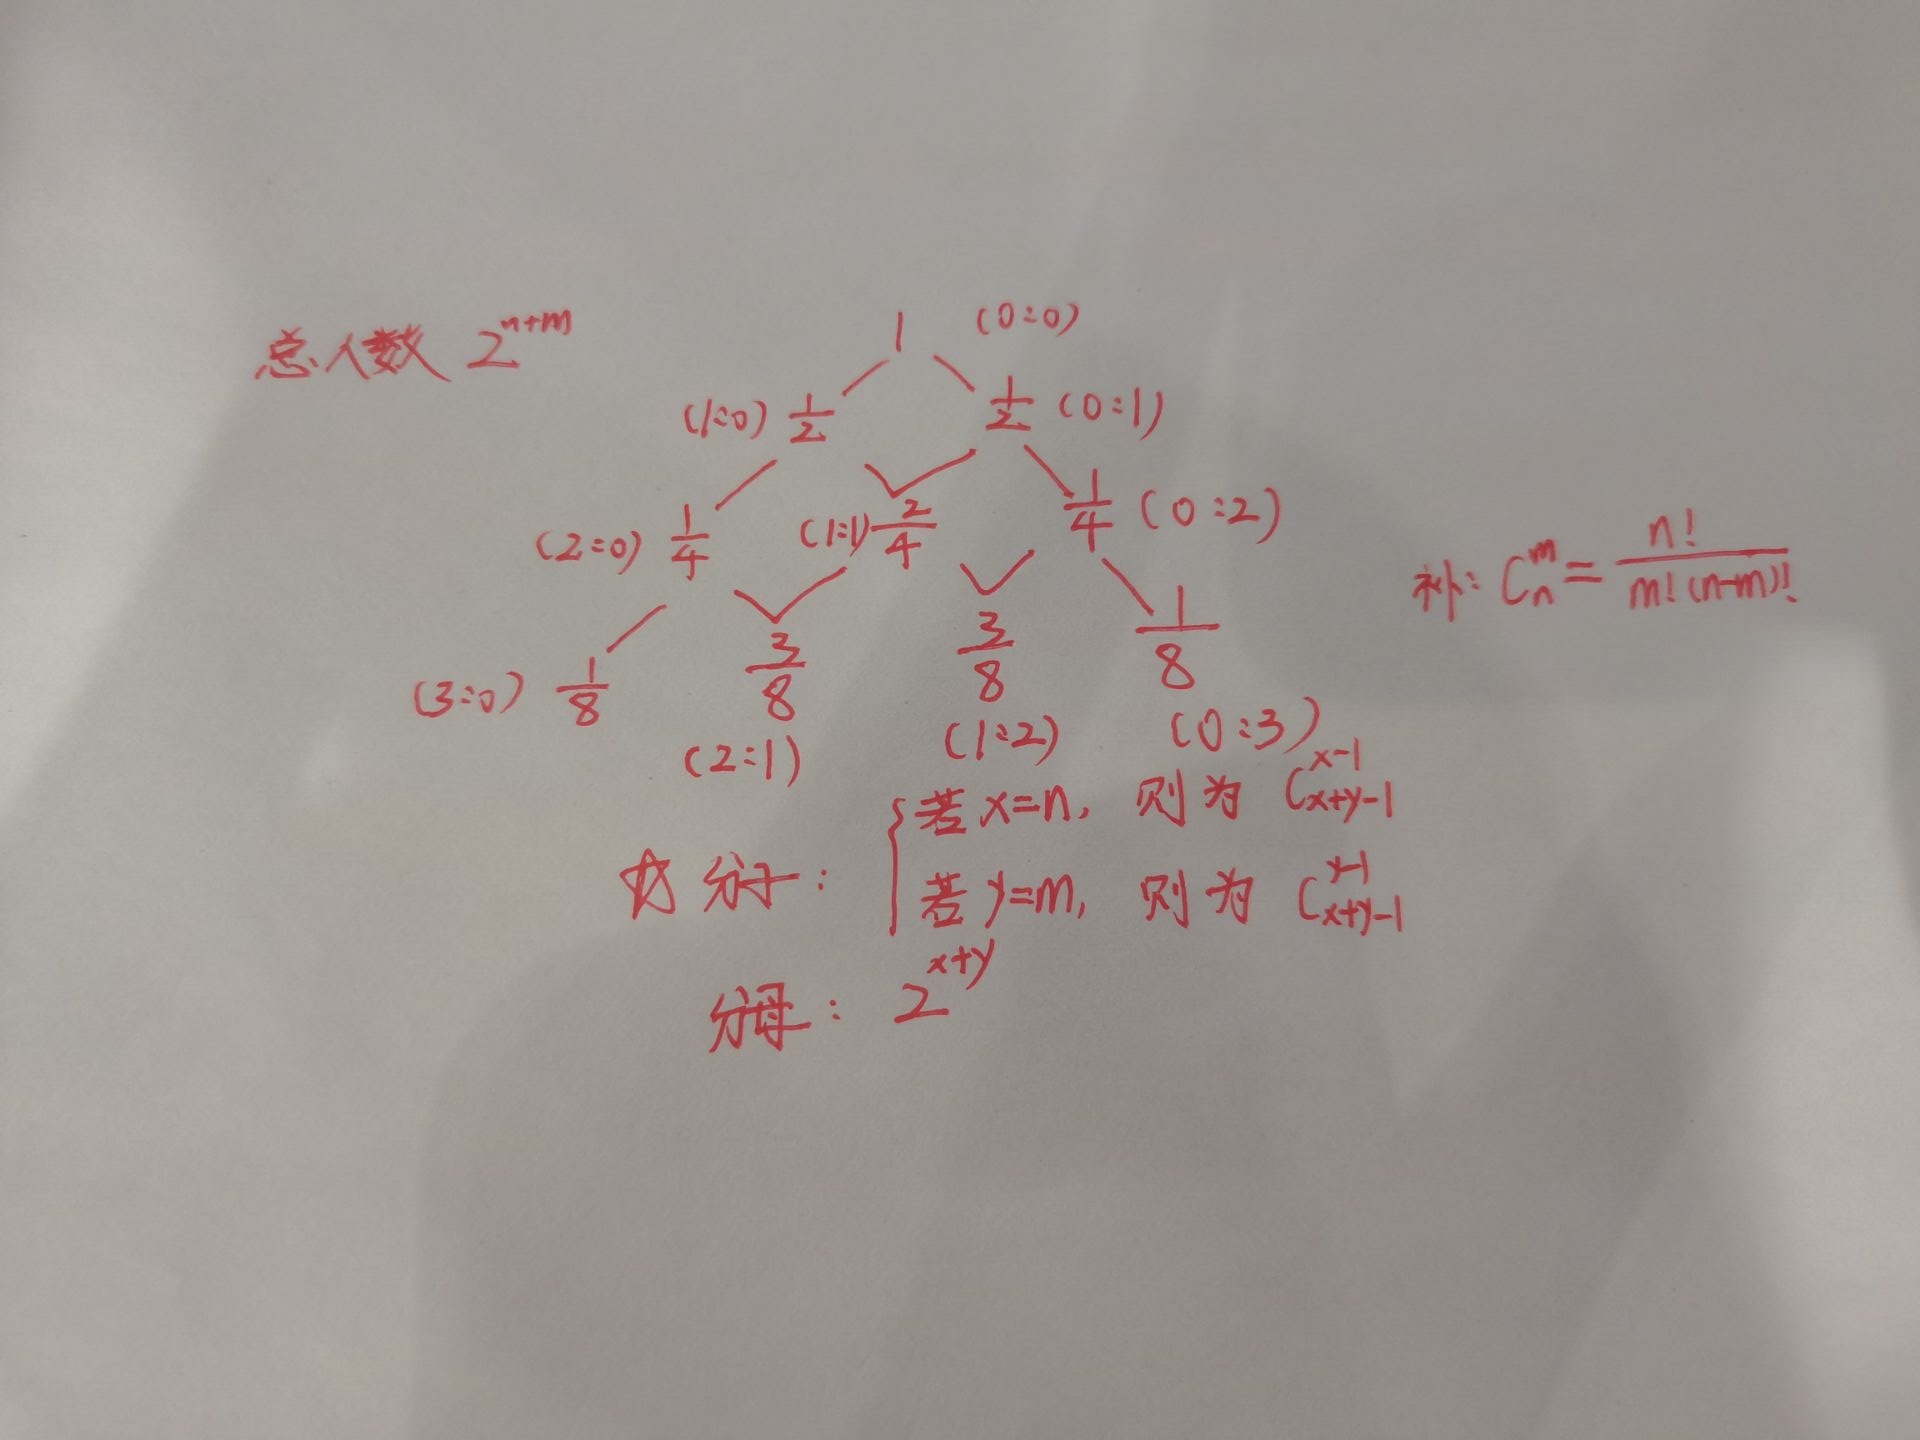 总人数 2^{n+m}
1 (0:0)
(1:0) 1/2 1/2 (0:1)
(2:0) 1/4 (1:1) 2/4 1/4 (0:2)
补: C_n^m = n!/m!(n-m)!
(3:0) 1/8 3/8 3/8 1/8
(2:1) (1:2) (0:3)
☆ 分子: { 若 x=n, 则为 C_{x+y-1}^{x-1}
若 y=m, 则为 C_{x+y-1}^{y-1}
分母: 2^{x+y}